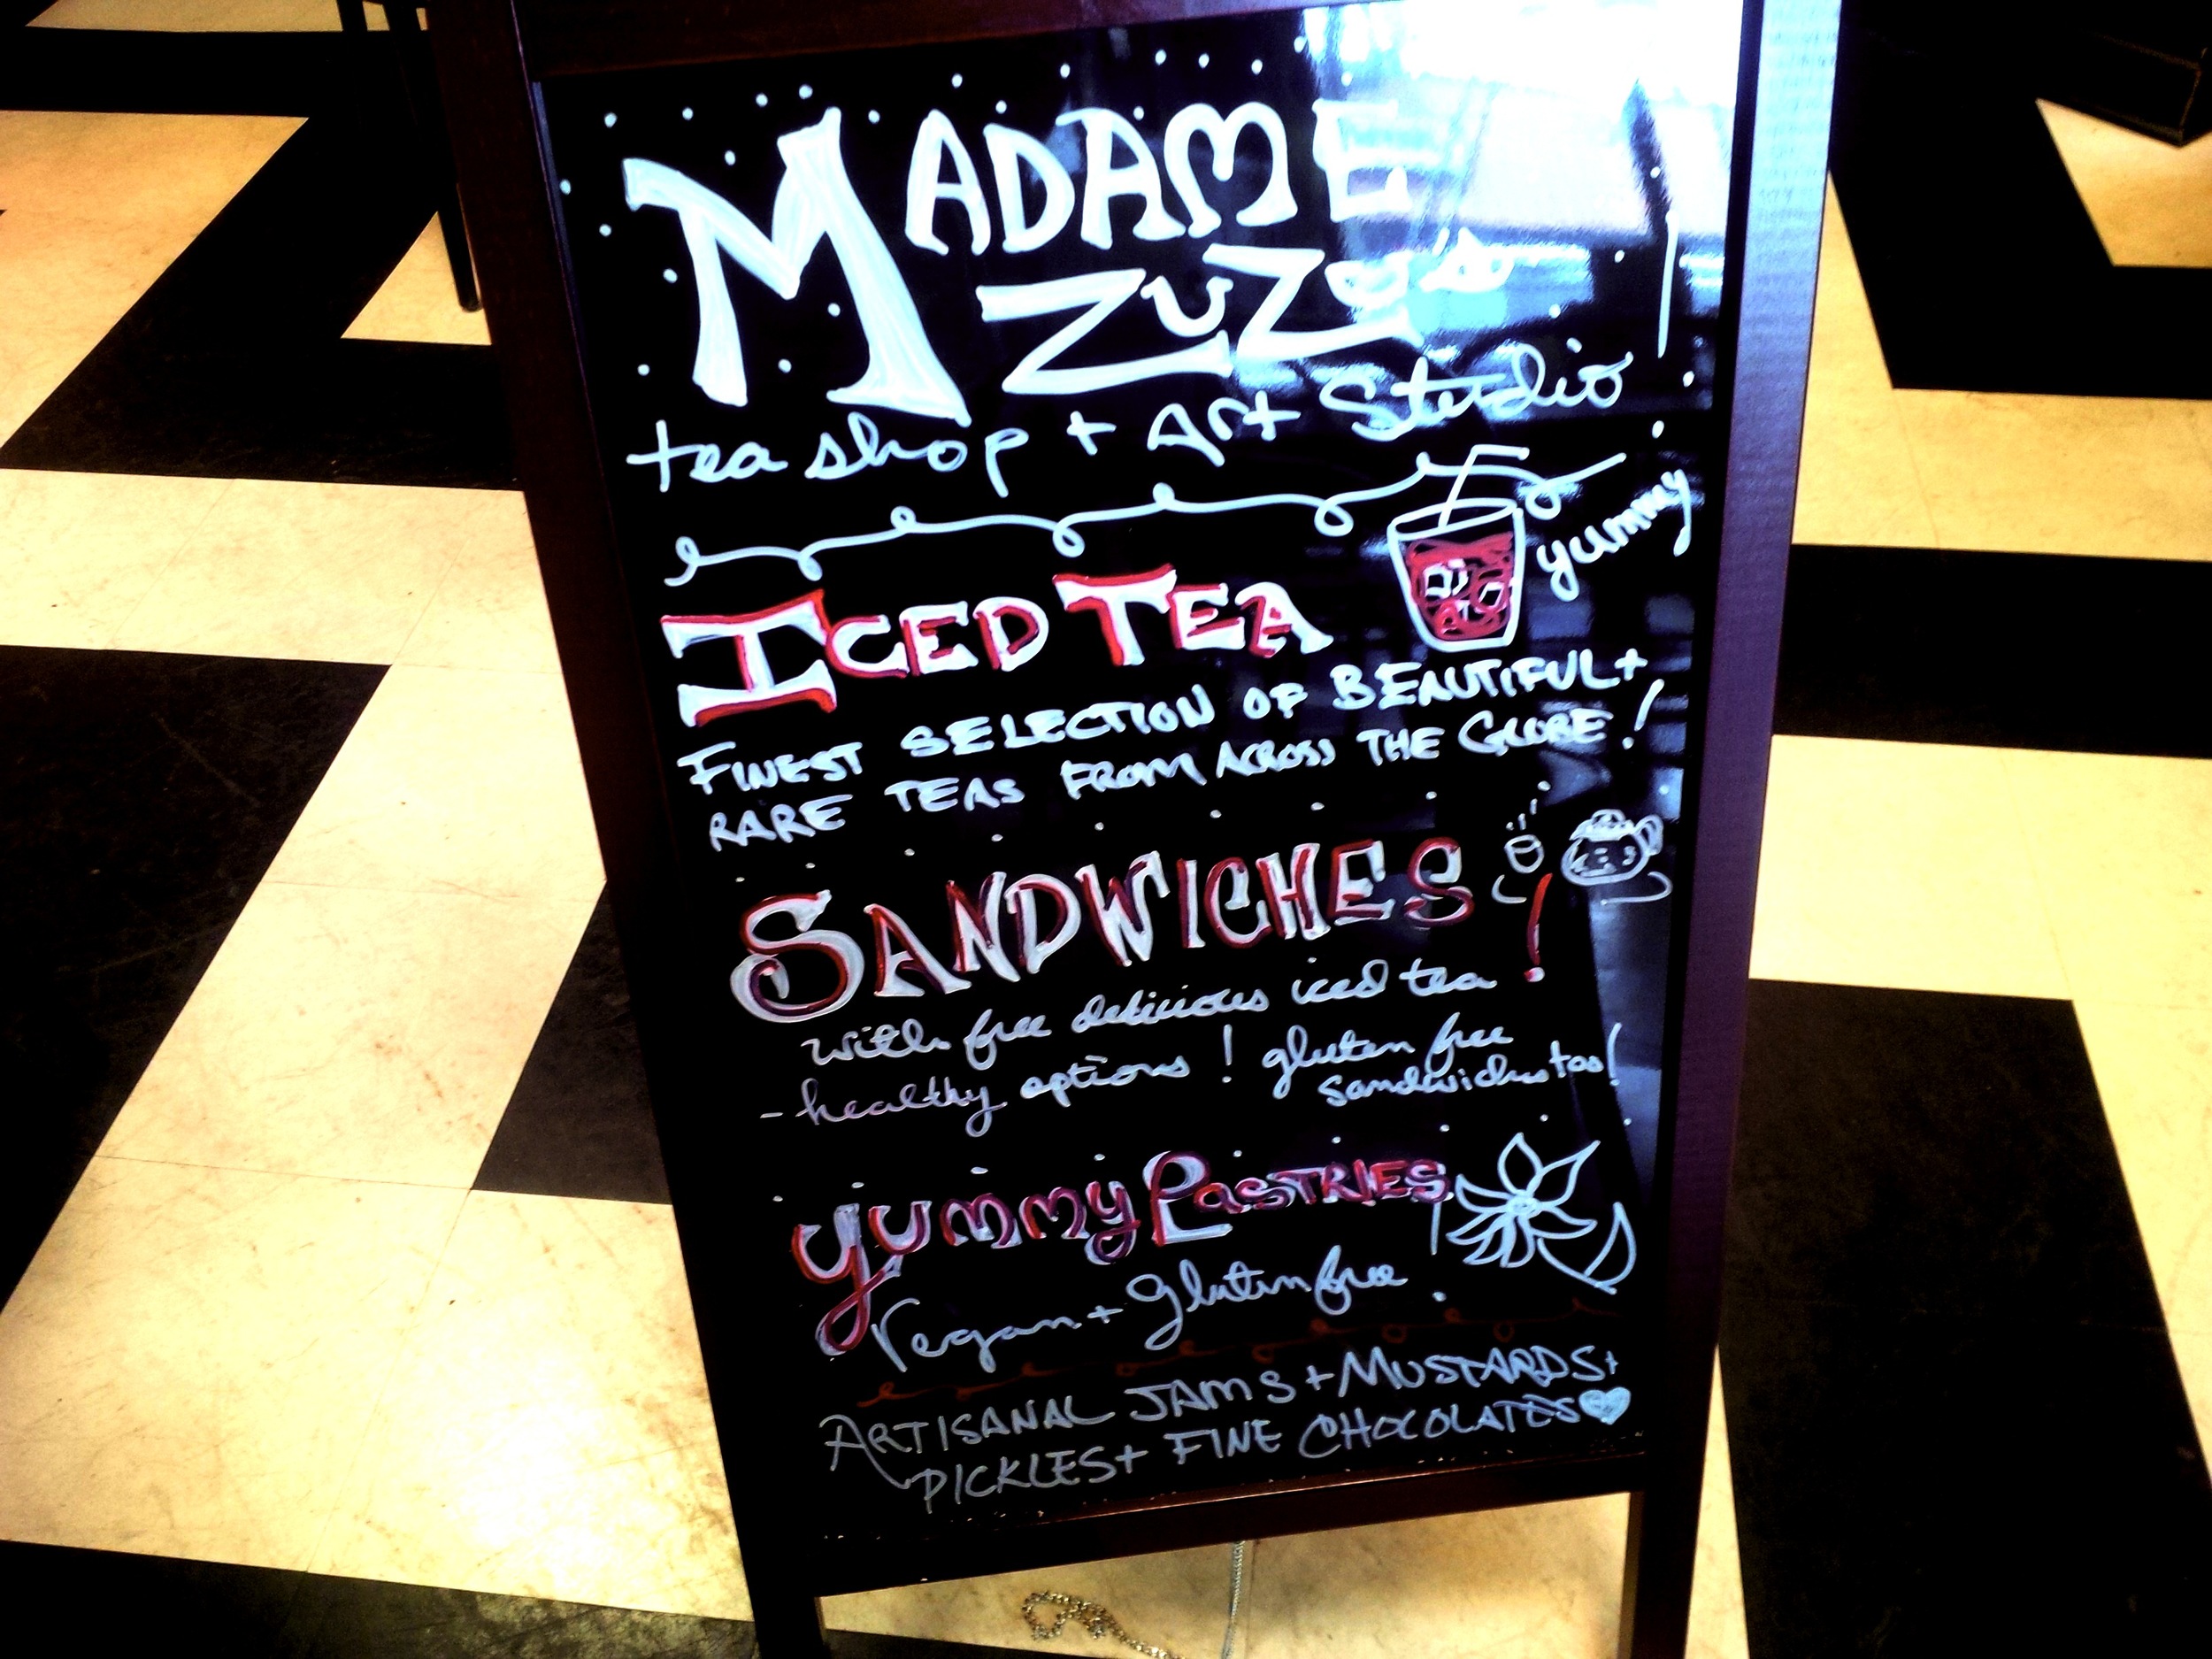 MADAME
ZUZU's
tea shop + Art Studio
yummy
ICED TEA
FINEST SELECTION OF BEAUTIFUL +
RARE TEAS FROM ACROSS THE GLOBE!
SANDWICHES!
with free delicious iced tea
- healthy options! gluten free
sandwiches too!
yummy PASTRIES
Vegan + Gluten free
ARTISANAL JAMS + MUSTARDS +
PICKLES + FINE CHOCOLATES